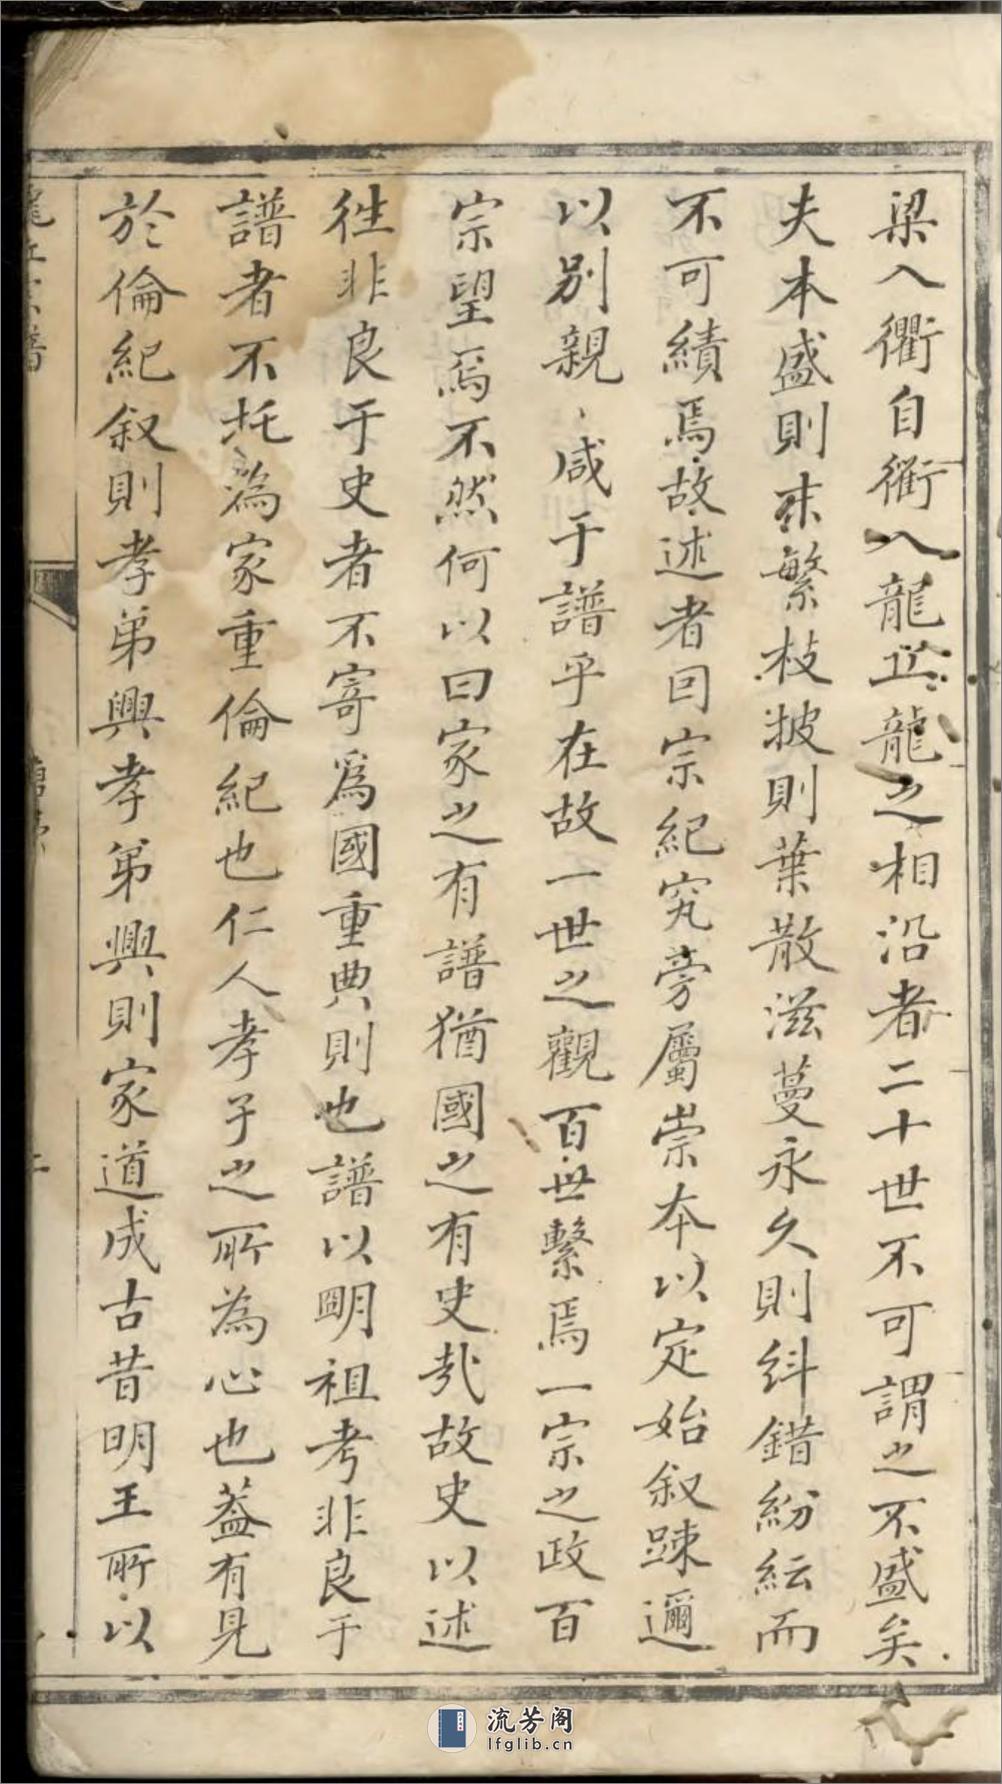 梁入衢自衢入龍丘龍之相沿者二十世不可謂之不盛矣
夫本盛則末繁枝披則葉散滋蔓永久則紏錯紛紜而
不可績焉故述者回宗紀究旁屬崇本以定始叙踈邇
以别親〻咸于譜乎在故一世之觀百世繫焉一宗之政百
宗望焉不然何以曰家之有譜猶國之有史㢤故史以述
徃非良于史者不寄爲國重典則也譜以明祖考非良于
譜者不托為家重倫紀也仁人孝子之所為心也葢有見
於倫紀叙則孝弟興孝弟興則家道成古昔明王所以
流芳阁
lfglib.cn